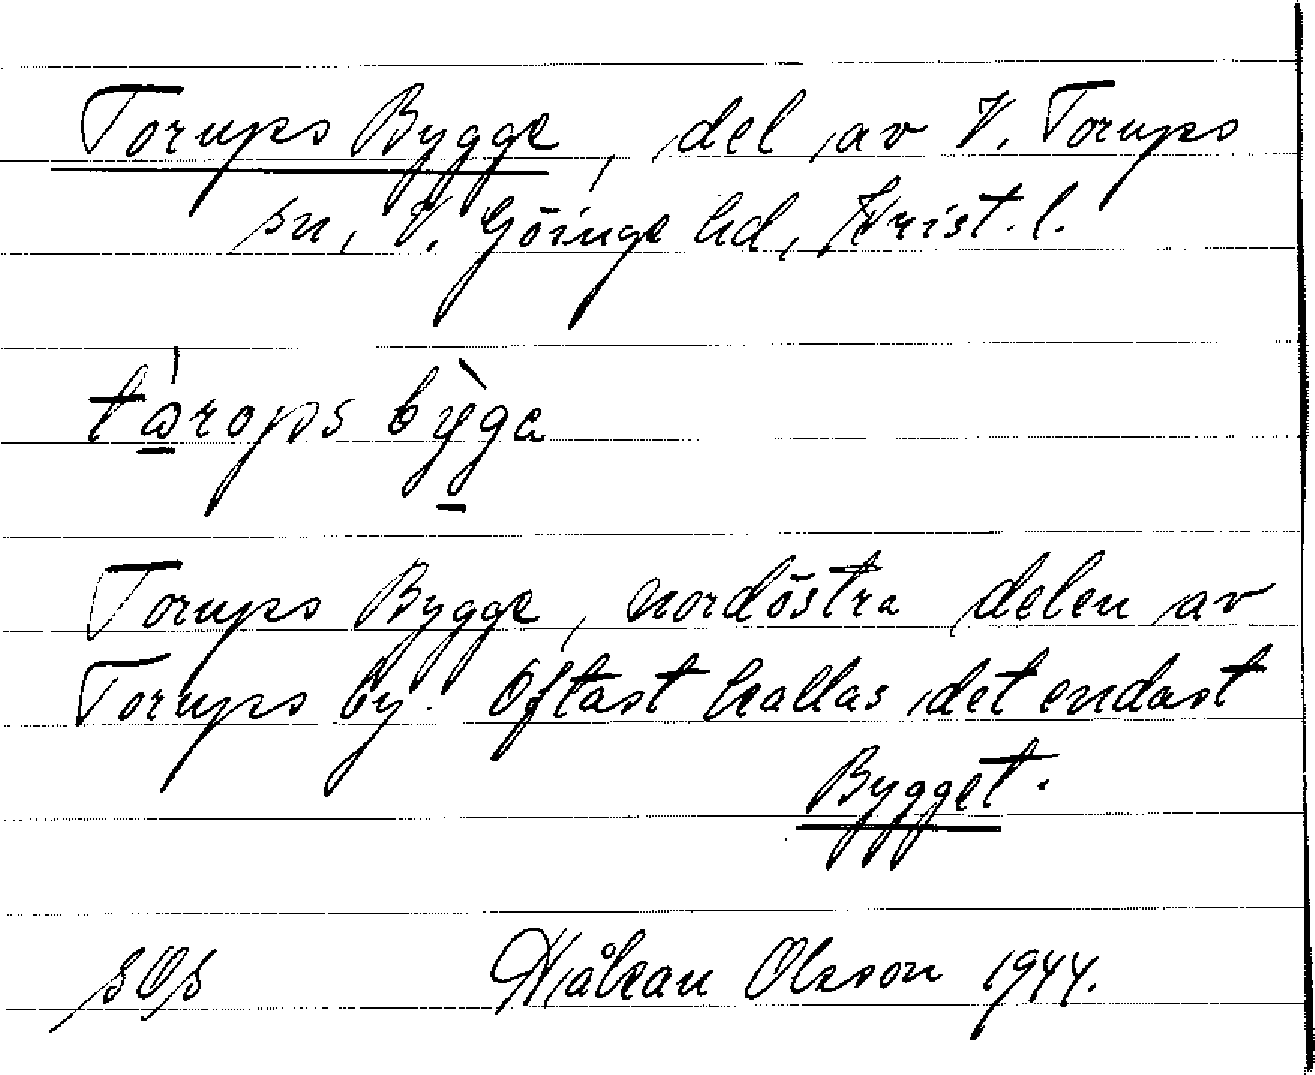 Torups Bygge, del av V. Torups
sn, V. Göinge hd, Krist. l.
tòrops bỳga
Torups Bygge, nordöstra delen av
Torups by. Oftast kallas det endast
Bygget.
Håkan Olsson 1944.